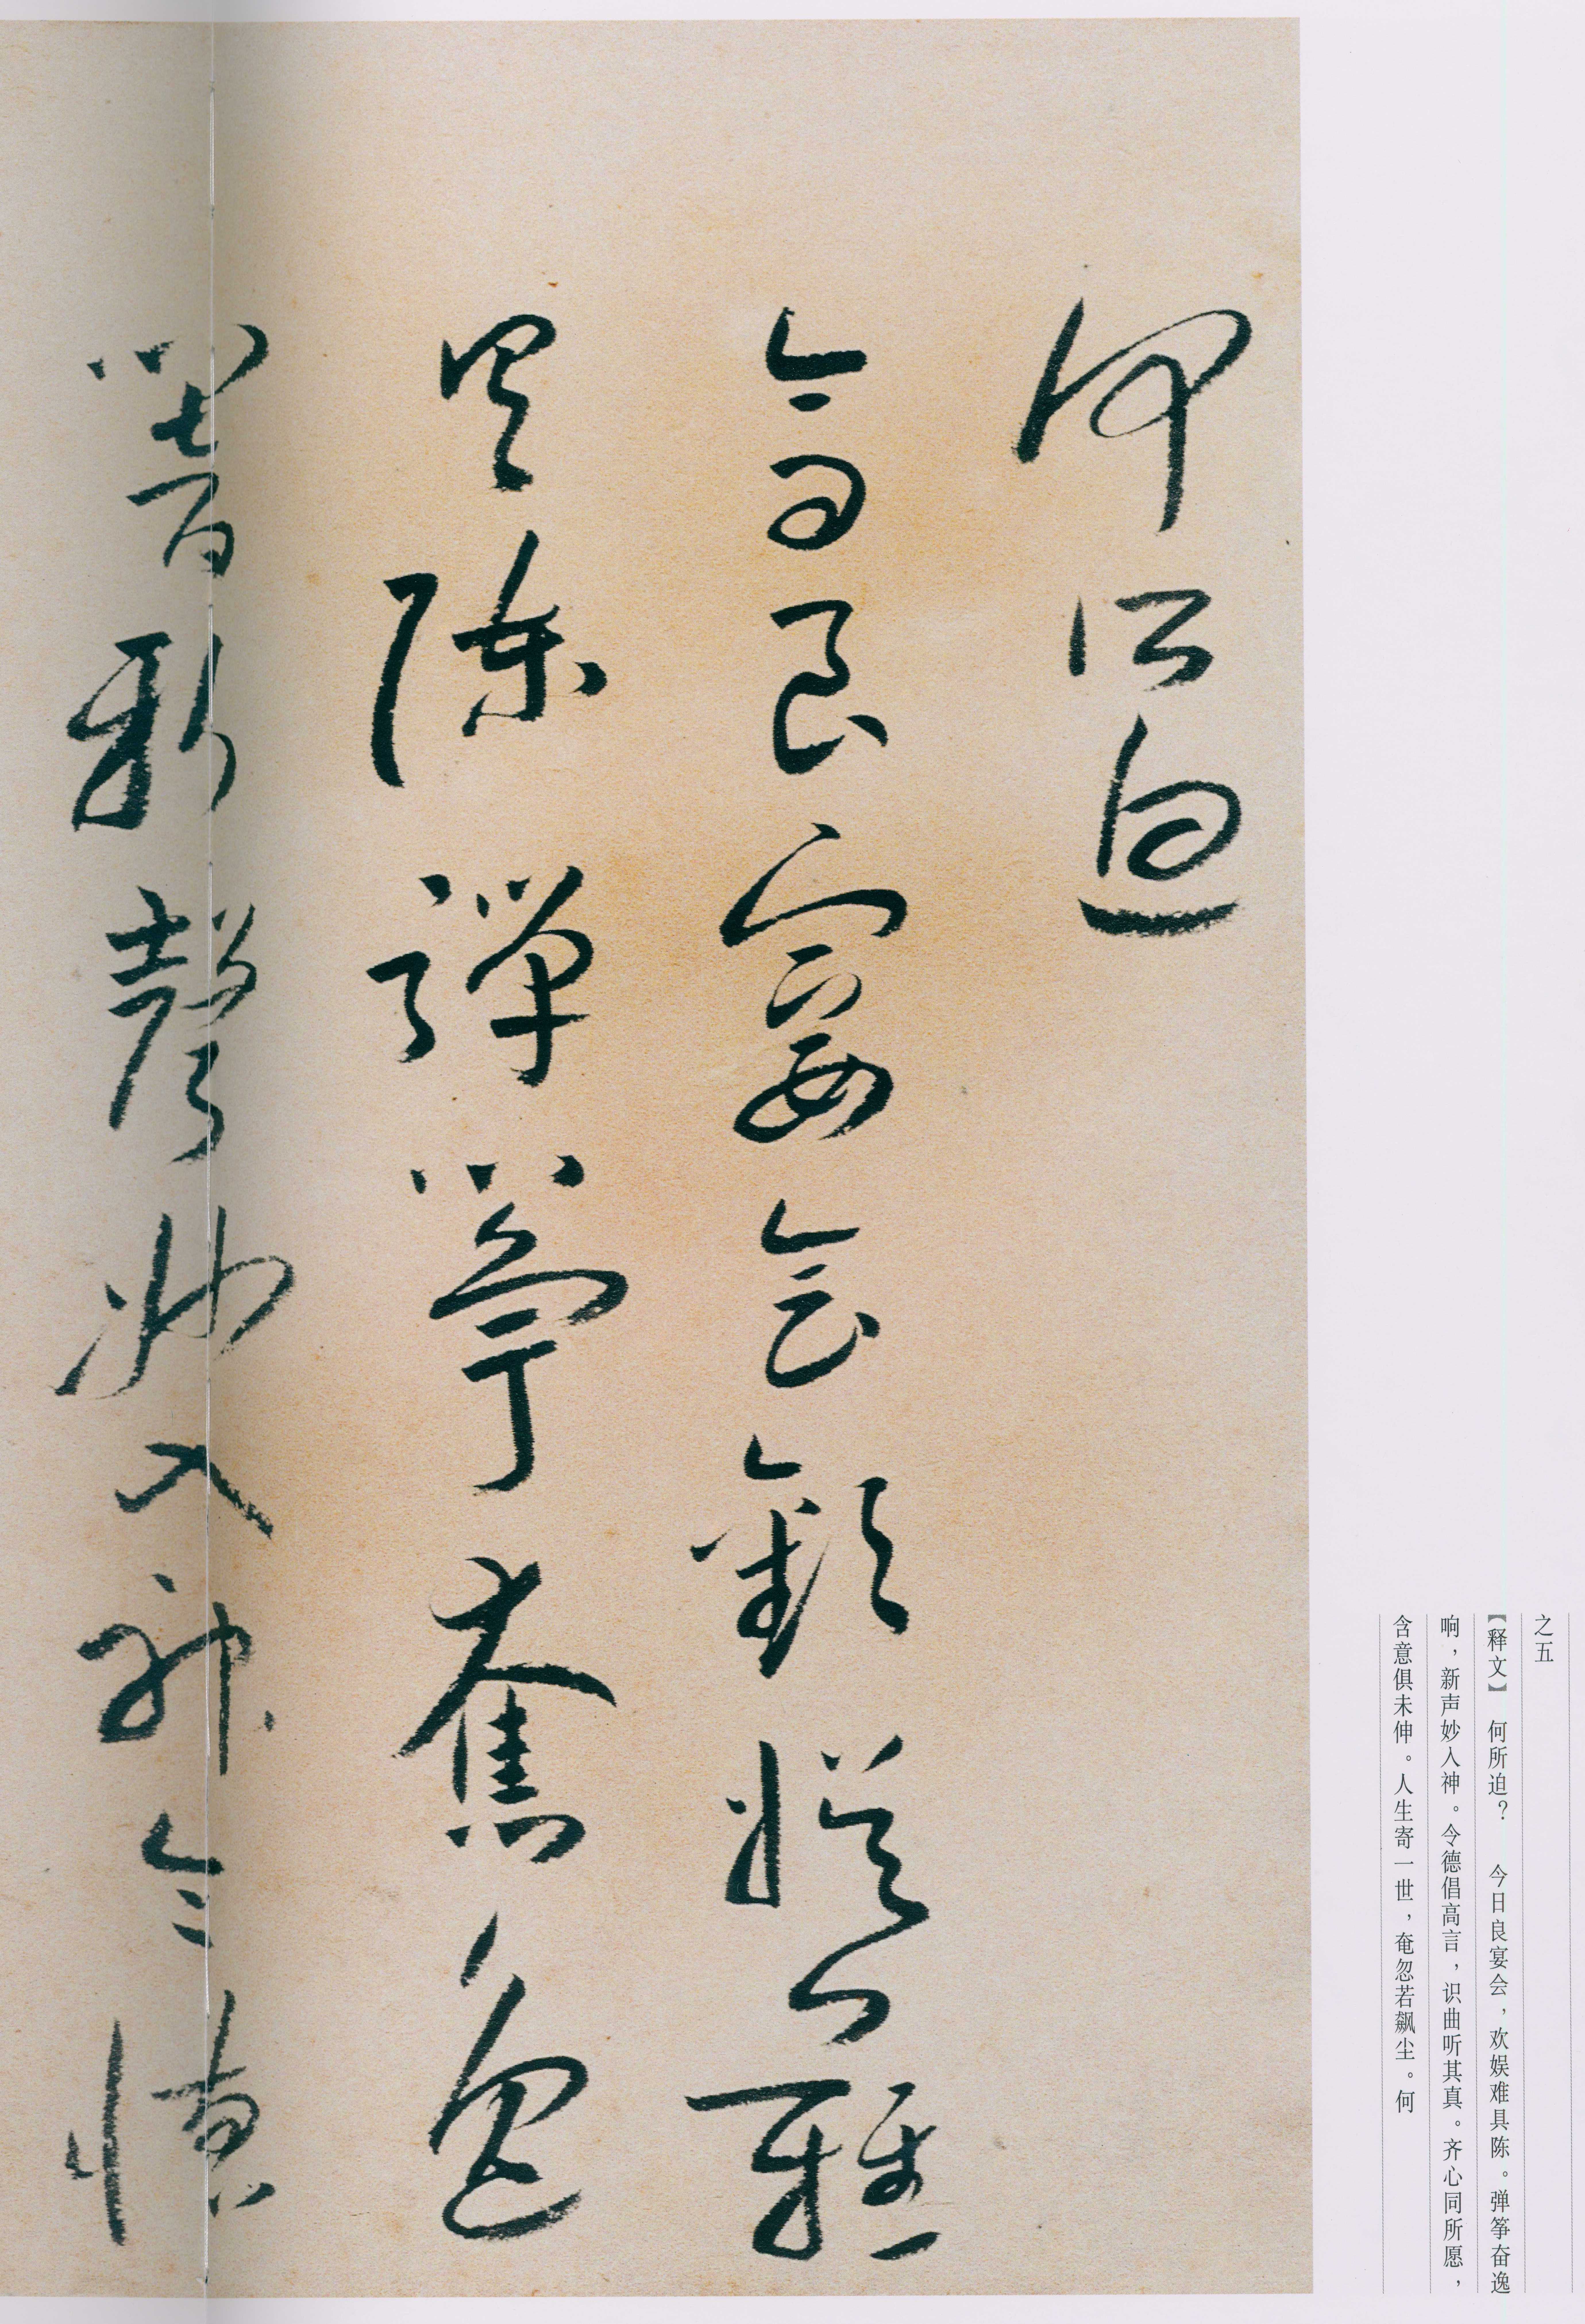 之五
【释文】 何所迫? 今日良宴会，欢娱难具陈。弹筝奋逸
响，新声妙入神。令德倡高言，识曲听其真。齐心同所愿，
含意俱未伸。人生寄一世，奄忽若飙尘。何
何所迫
今日良宴會歡娛難
具陳彈箏奮逸
響新聲妙入神令德